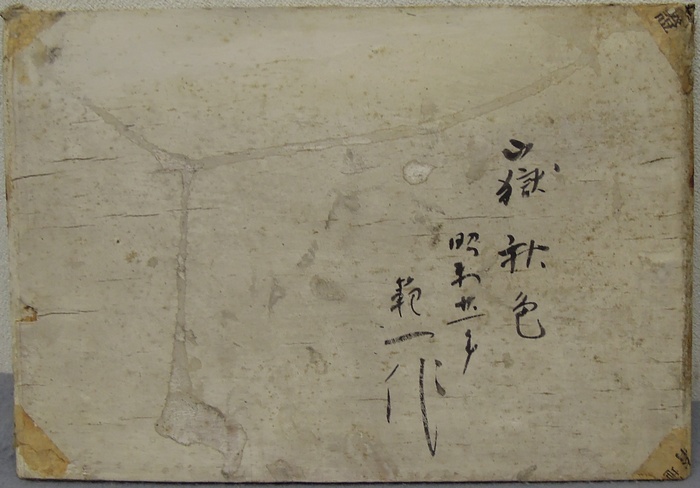 山嶽秋色
昭和廿一年
範一作